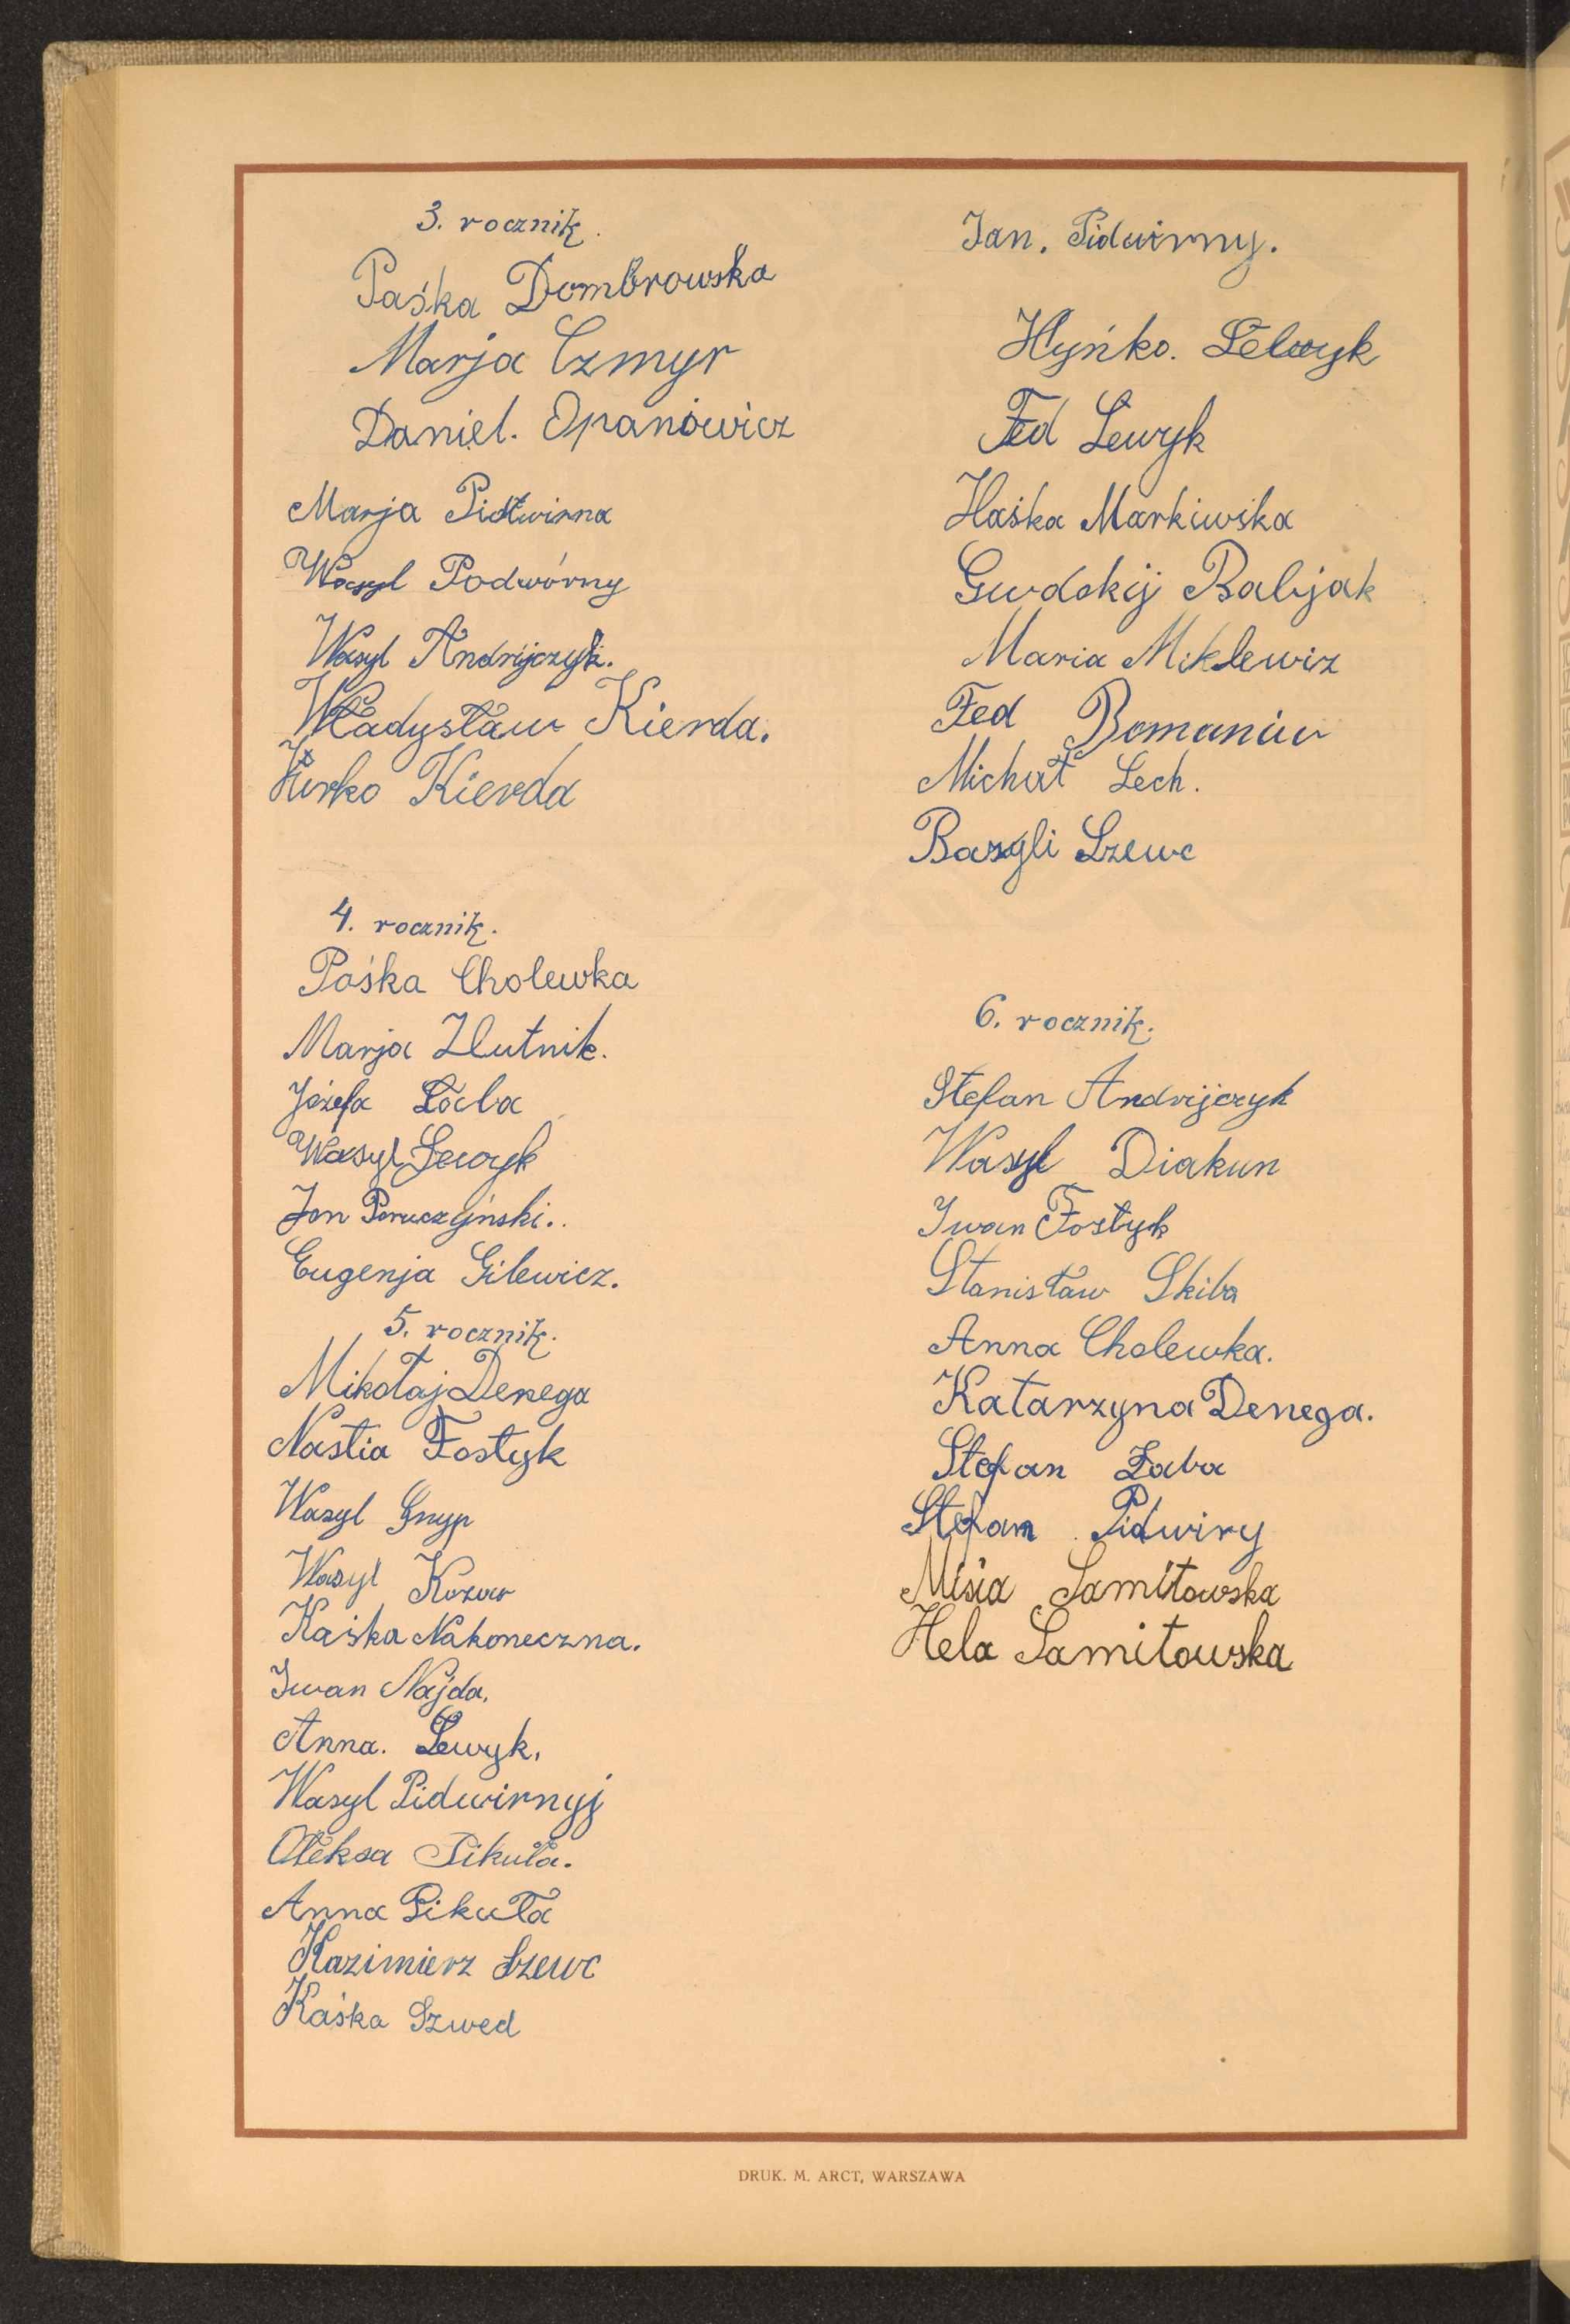 3. rocznik.
Paśka Dombrowska
Marja Czmyr
Daniel. Opanowicz
Marja Pidwirna
Wasyl Podwórny
Wasyl Andrijczyk.
Władysław Kierda.
Jurko Kierda
4. rocznik.
Pośka Cholewka
Marja Hutnik.
Józefa Łaba
Wasyl Lewyk
Jan Poruczyński..
Eugenja Gilewicz.
5. rocznik.
Mikołaj Denega
Nastia Fostyk
Wasyl Gnyp
Wasyl Kozar
Kaśka Nakoneczna.
Iwan Najda.
Anna. Lewyk.
Wasyl Pidwirnyj
Ołeksa Pikuła.
Anna Pikuła
Kazimierz Szewc
Kaśka Szwed
Jan. Pidwirny.
Hyńko. Lewyk
Fed Lewyk
Haśka Markiwska
Babjak
Maria Miklewiz
Fed Romaniw
Michał Lech.
Bazyli Szewc
6. rocznik.
Stefan Andrijczyk
Wasyl Diakun
Iwan Fostyk
Stanisław Skiba
Anna Cholewka.
Katarzyna Denega.
Stefan Łaba
Stefan Pidwiry
Misia Samitowska
Hela Samitowska
DRUK. M. ARCT, WARSZAWA